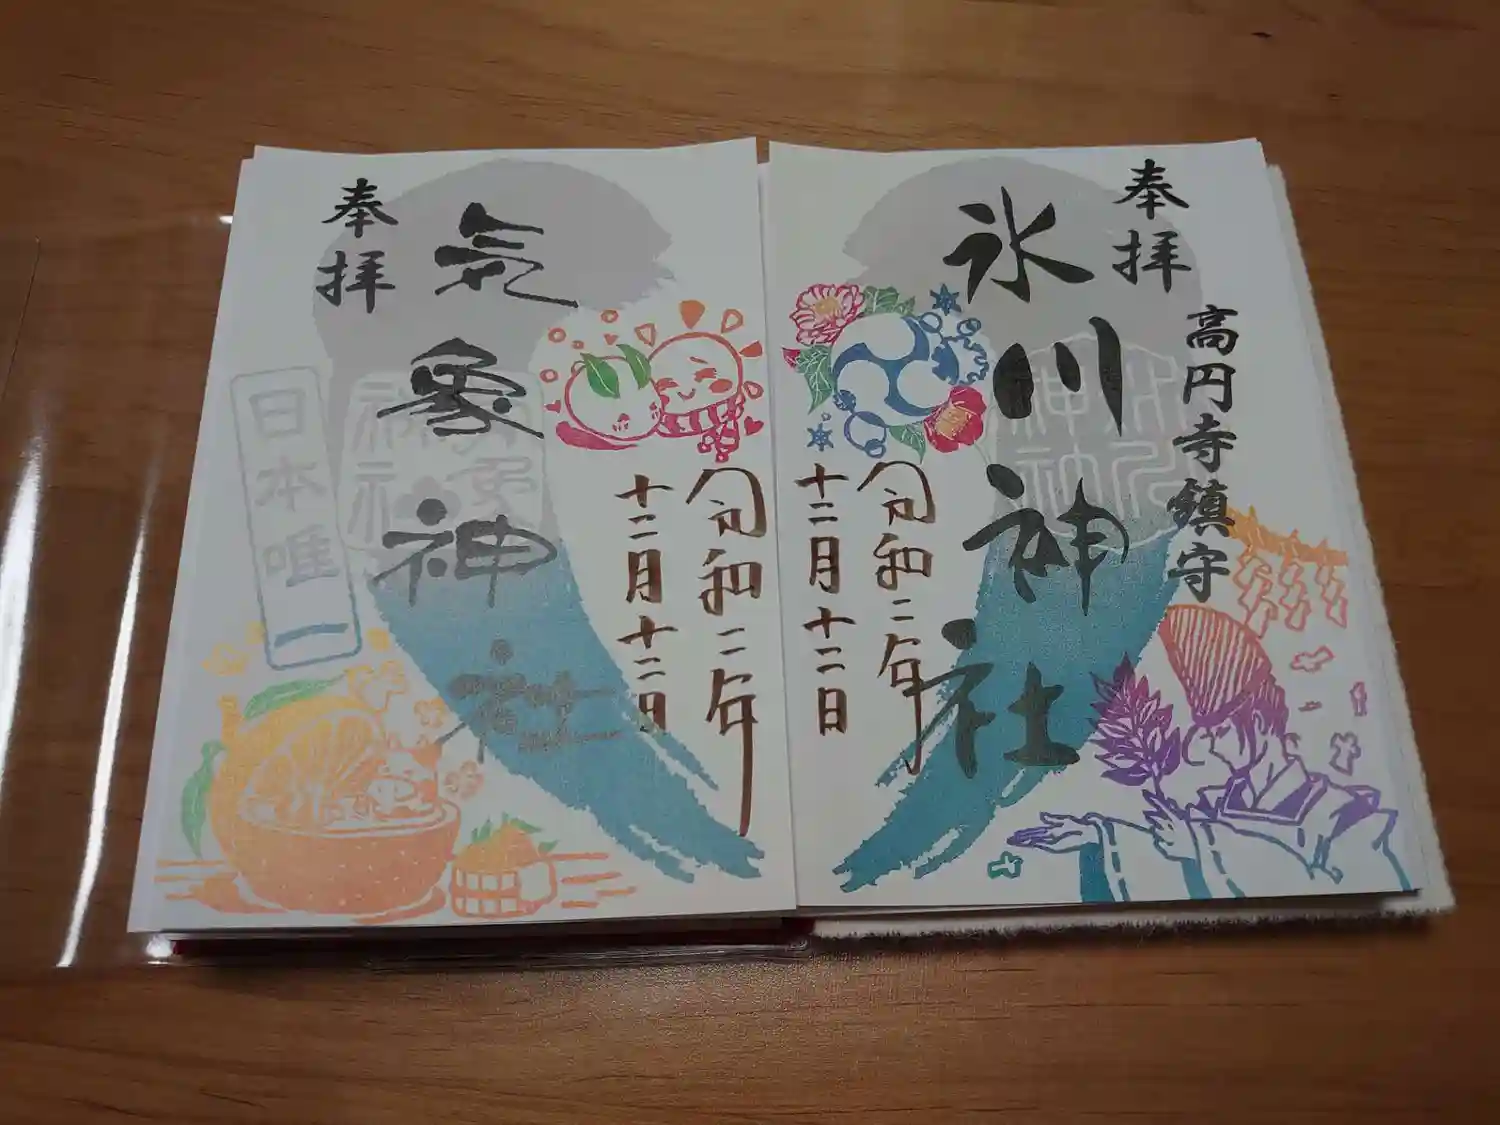 奉拝
高円寺鎮守
氷川神社
令和二年
十二月十二日
奉拝
気象神社
令和二年
十二月十二日
日本唯一